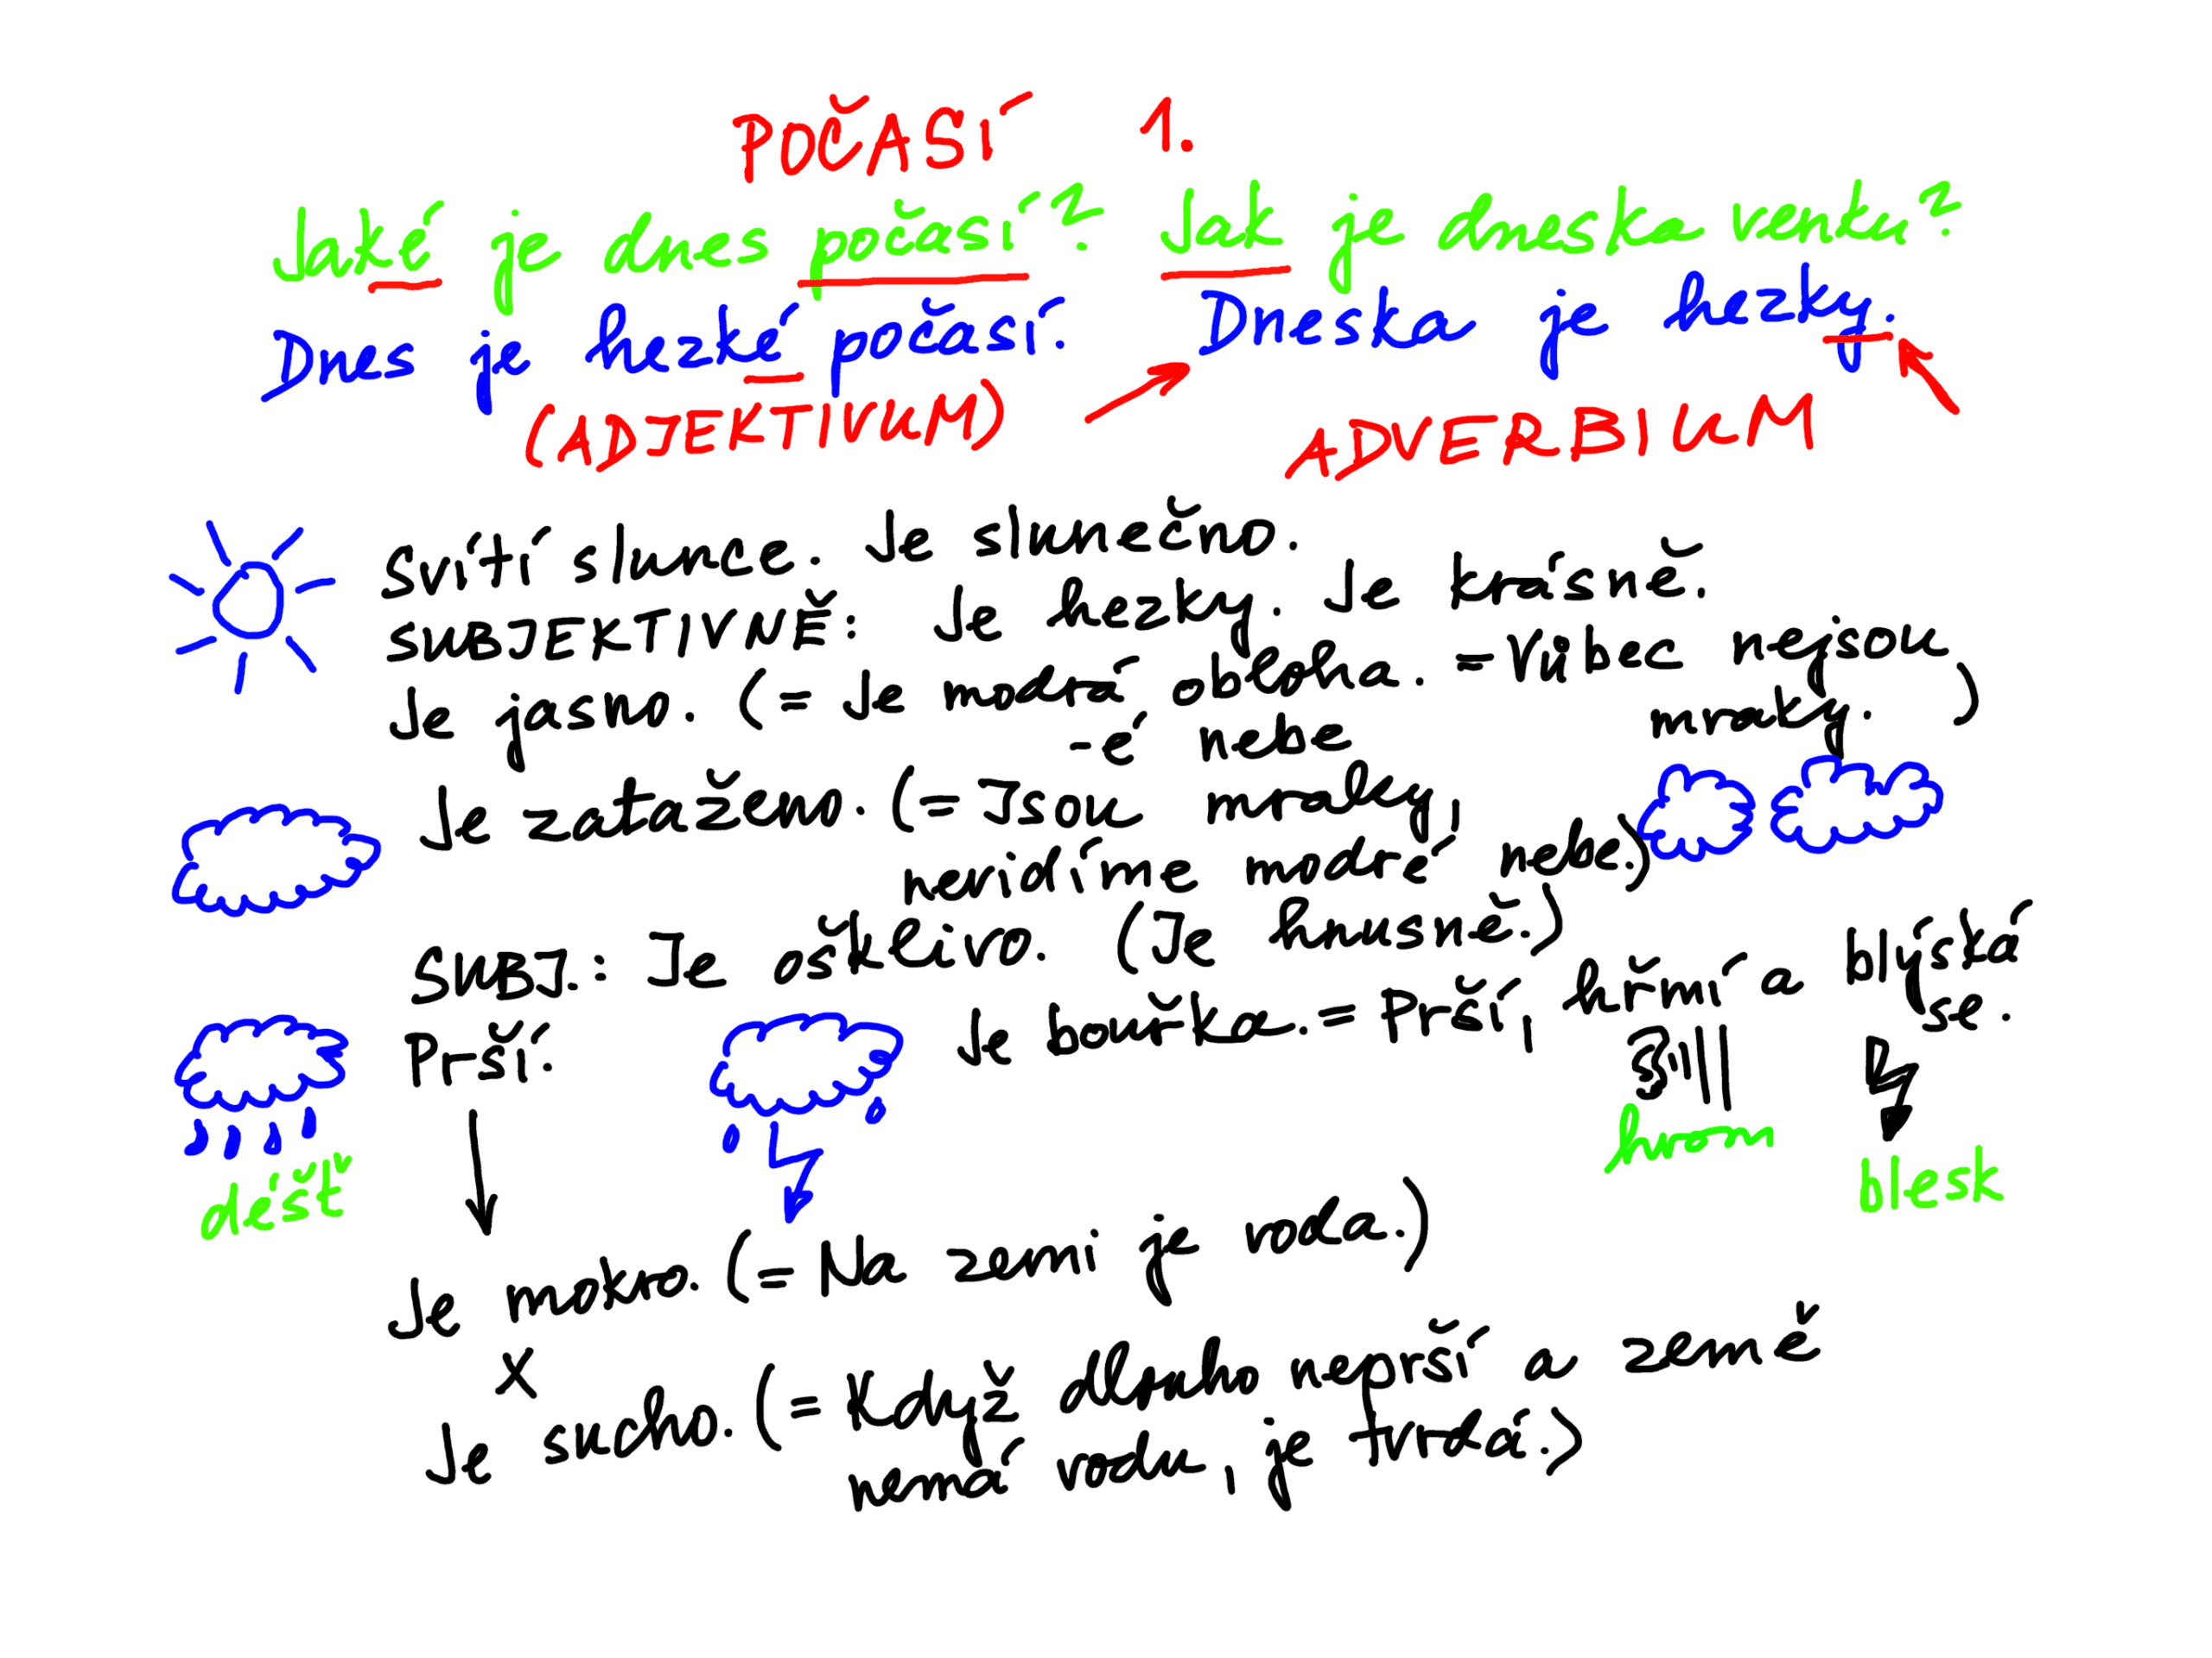 POČASÍ 1.
Jaké je dnes počasí? Jak je dneska venku?
Dnes je hezké počasí. Dneska je hezky.
(ADJEKTIVUM) ADVERBIUM
Svítí slunce. Je slunečno.
SUBJEKTIVNĚ: Je hezky. Je krásně.
Je jasno. (= Je modrá obloha. = Vůbec nejsou
-é nebe mraky.)
Je zataženo. (= Jsou mraky,
nevidíme modré nebe.)
SUBJ.: Je ošklivo. (Je hnusně.)
Prší. Je bouřka. = Prší, hřmí a blýská
se.
hrom
déšť blesk
Je mokro. (= Na zemi je voda.)
X
Je sucho. (= Když dlouho neprší a země
nemá vodu, je tvrdá.)